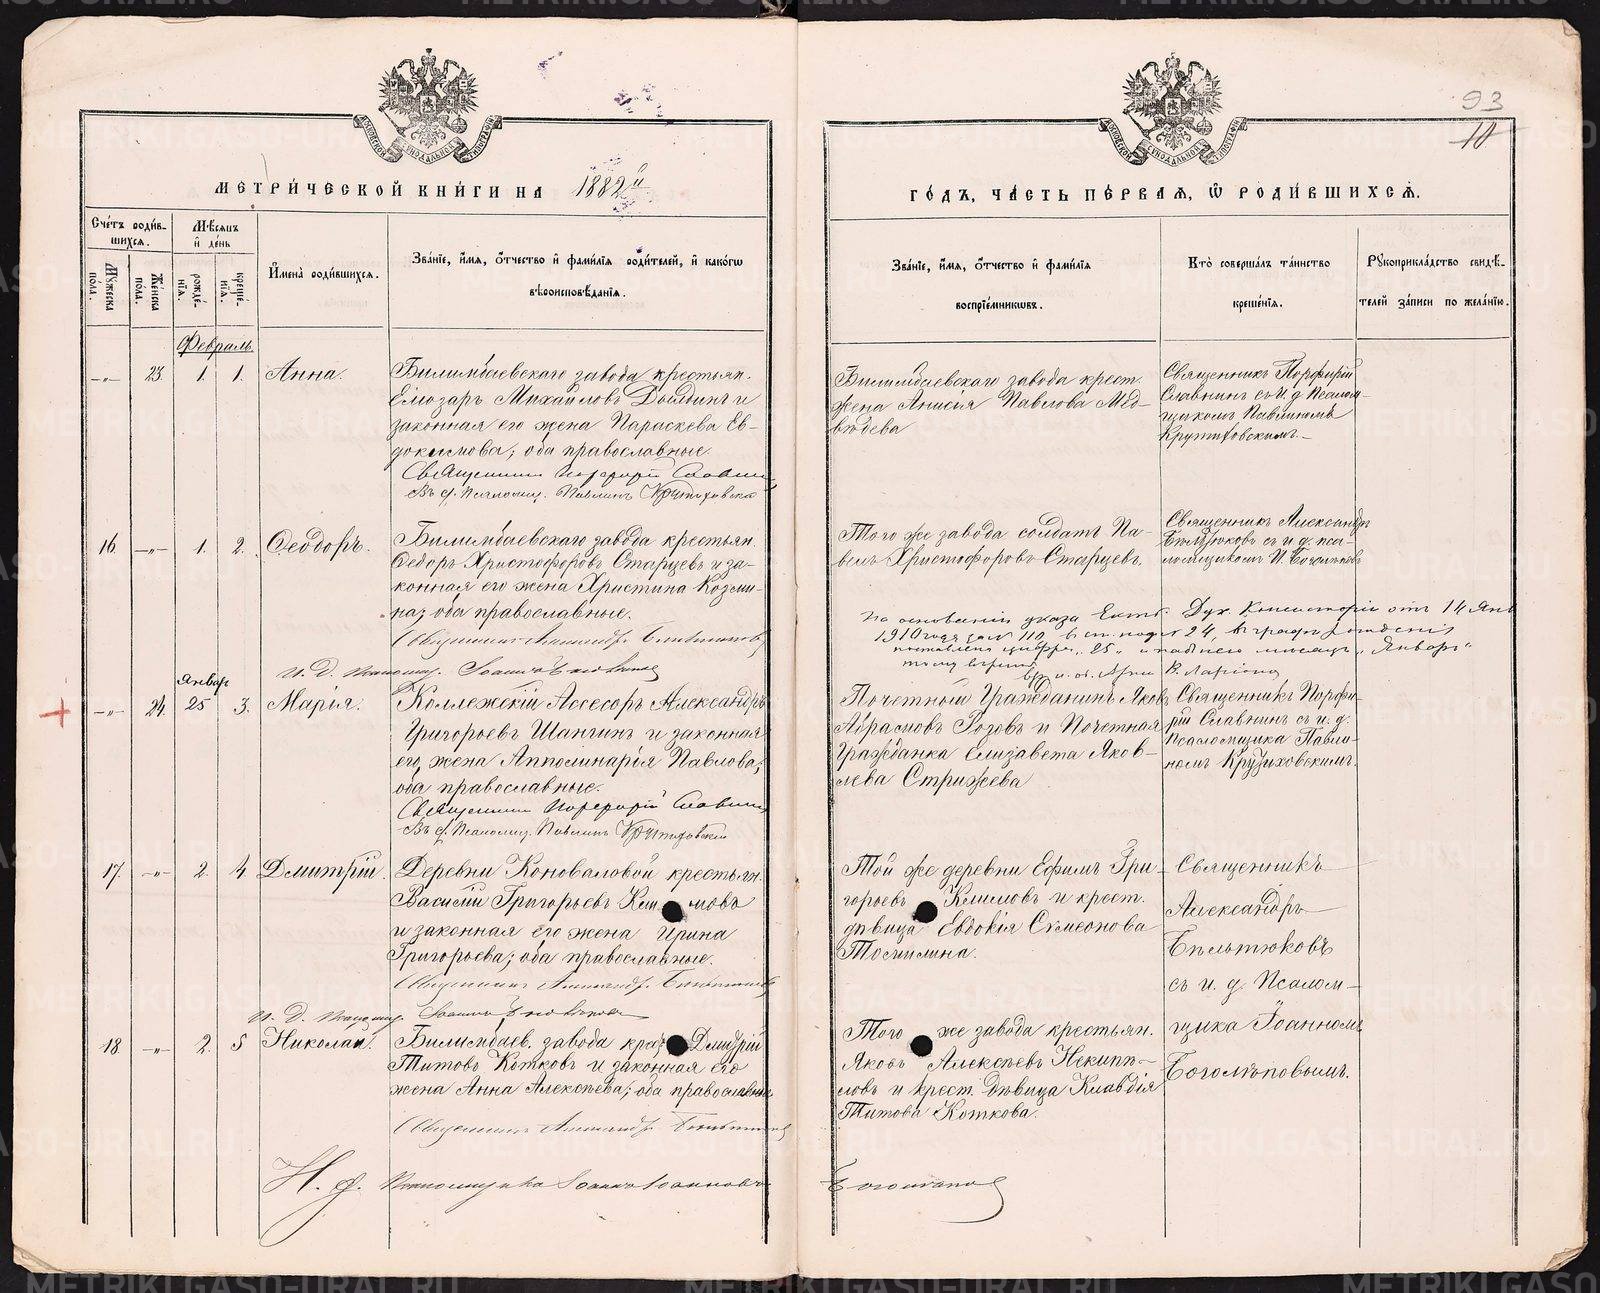 93
10
МЕТРИ́ЧЕСКОЙ КНИ́ГИ НА 1882й
ГО́ДЪ, ЧА́СТЬ ПЕ́РВАЯ, Ѡ РОДИ́ВШИХСЯ.
Сче́тъ роди́в-
шихся.
Му́жеска по́ла.
Же́нска по́ла.
Мѣсяцъ
и де́нь
рожде́-
нїя.
креще́-
нїя.
И҆мена̀ роди́вшихся.
Зва́нїе, и҆́мя, ѻ҆́тчество и҆ фами́лїя роди́телей, и҆ како́гѡ
вѣроисповѣ́данїя.
Зва́нїе, и҆́мя, ѻ҆́тчество и҆ фами́лїя
воспрїе́мникѡвъ.
Кто̀ соверша́лъ та́инство
креще́нїя.
Рꙋкоприкла́дство свидѣ́-
телей за́писи по жела́нїю.
Февраль
-„- 23. 1. 1. Анна.
Билимбаевскаго завода крестьян.
Елиозаръ Михайловъ Дылдинъ и
законная его жена Параскева Ев-
докимова; оба православные.
Священникъ Порфирій Славнинъ
Въ д. Псаломщ. Павлинъ Крутиховскій
Билимбаевскаго завода крест.
жена Анисія Павлова Мед-
вѣдева
Священникъ Порфирій
Славнинъ съ и. д. Псалом-
щикомъ Павлиномъ
Крутиховскимъ.
16 -„- 1. 2. Ѳеодоръ.
Билимбаевскаго завода крестьян.
Ѳедоръ Христофоровъ Старцевъ и за-
конная его жена Христина Козми-
на; оба православные.
Священникъ Александръ Бѣльтюковъ
И. Д. Псаломщ. Іоаннъ Боголѣповъ
Того же завода солдатъ Па-
велъ Христофоровъ Старцевъ.
Священникъ Александръ
Бѣльтюковъ съ и. д. пса-
ломщикомъ И. Боголѣповъ
На основаніи указа Екат. Дух. Консисторіи отъ 14 Янв
1910 года за № 110, въ ст. подъ № 24, въ графѣ рожденія
поставлена цифра „25“ и надпись мѣсяцъ „Январь“
Январ
-„- 24. 25 3. Марія.
Коллежскій Ассесоръ Александръ
Григорьевъ Шангинъ и законная
его жена Апполинарія Павлова;
оба православные.
Священникъ Порфирій Славнинъ
Въ д. Псаломщ. Павлинъ Крутиховскій
Почетный Гражданинъ Яковъ
Абрамовъ Роговъ и Почетная
Гражданка Елизавета Яков-
лева Стрижева
Священникъ Порфи-
рій Славнинъ съ и. д.
Псаломщика Павли-
номъ Крутиховскимъ.
17 -„- 2. 4. Дмитрій.
Деревни Коноваловой крестьян.
Василій Григорьевъ Климовъ
и законная его жена Ирина
Григорьева; оба православные.
Священникъ Александръ Бѣльтюковъ
И. Д. Псаломщ. Іоаннъ Боголѣповъ
Той же деревни Ефимъ Гри-
горьевъ Климовъ и крест.
дѣвица Евдокія Симеонова
Томилина.
Священникъ
Александръ
Бѣльтюковъ
съ и. д. Псалом-
щика Іоанномъ
Боголѣповымъ.
18 -„- 2. 5 Николай.
Билимбаев. завода крест. Дмитрій
Титовъ Котковъ и законная его
жена Анна Алексѣева; оба православные
Священникъ Александръ Бѣльтюковъ
Того же завода крестьян.
Яковъ Алексѣевъ Некипѣ-
ловъ и крест. дѣвица Клавдія
Титова Коткова.
И. д. Псаломщика Іоаннъ Іоанновъ Боголѣповъ